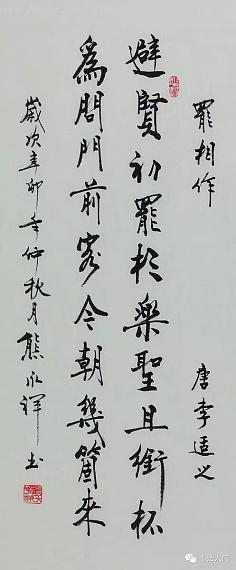 罷相作 唐李适之
避賢初罷相樂聖且銜杯
爲問門前客今朝幾箇來
歲次辛卯年仲秋月熊永祥书